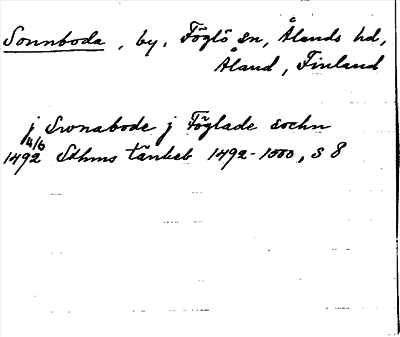 Sonnboda, by, Föglö sn, Ålands hd,
Åland, Finland
j Swonabode j Föglade sochn
4/6
1492 Sthms tänkeb 1492-1500, s 8